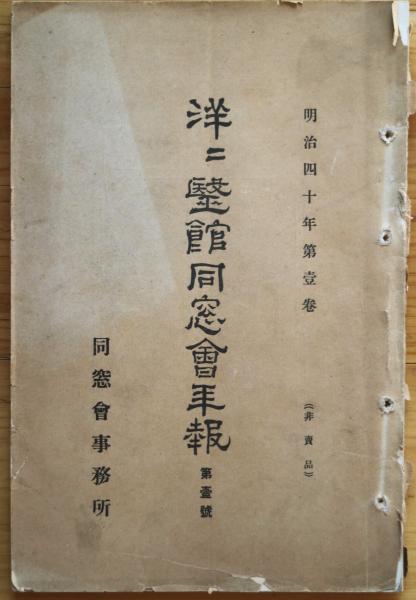 明治四十年第壹卷
(非賣品)
洋々醫館同窓會年報
第壹號
同窓會事務所